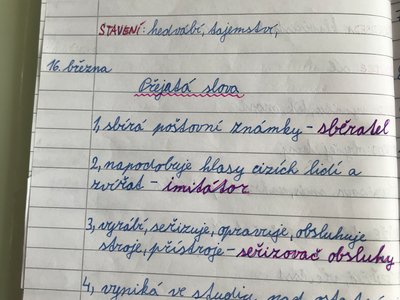 STAVENÍ: hedvábí, tajemství,
16. března
Přejatá slova
1, sbírá poštovní známky - sběratel
2, napodobuje hlasy cizích lidí a
zvířat - imitátor
3, vyrábí, seřizuje, opravuje, obsluhuje
stroje, přístroje - seřizovač obsluhy
4, vyniká ve studiu, nad ostatní